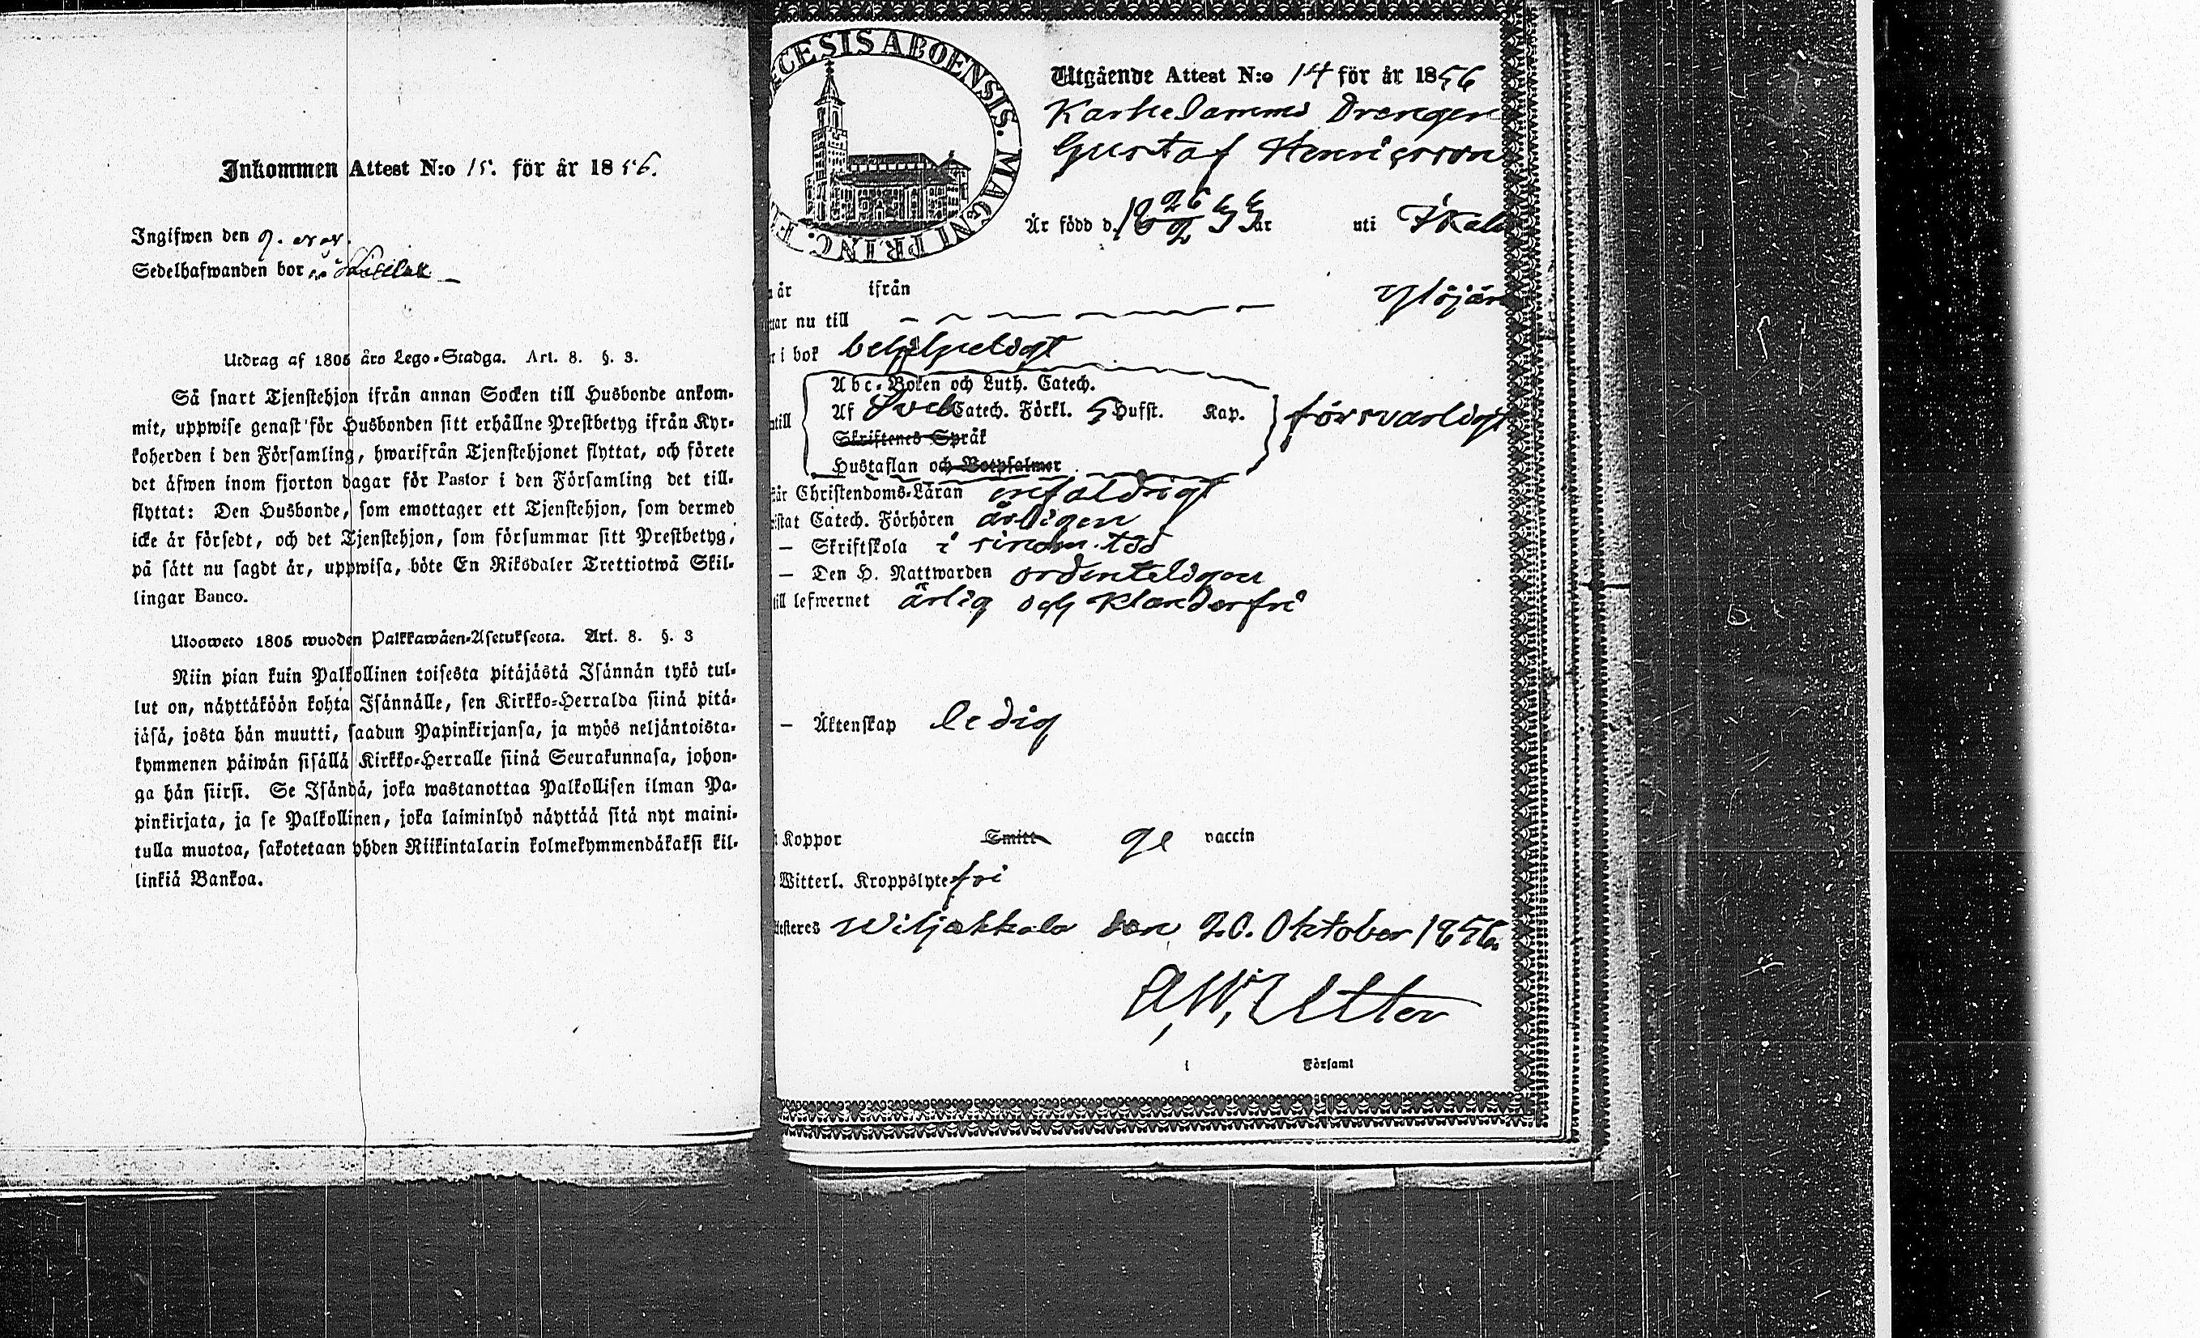 Inkommen Attest N:o 15. för år 1856.
Ingifwen den 9. nov.
Sedelhafwanden bor
Utdrag af 1805 års Lego-Stadga. Art. 8. §. 3.
Så snart Tjenstehjon ifrån annan Socken till Husbonde ankom-
mit, uppwise genast för Husbonden sitt erhållne Prestbetyg ifrån Kyr-
koherden i den Församling, hwarifrån Tjenstehjonet flyttat, och förete
det äfwen inom fjorton dagar för Pastor i den Församling det till-
flyttat: Den Husbonde, som emottager ett Tjenstehjon, som dermed
icke är försedt, och det Tjenstehjon, som försummar sitt Prestbetyg,
på sätt nu sagdt är, uppwisa, böte En Riksdaler Trettiotwå Skil-
lingar Banco.
Ulosweto 1805 wuoden Palkkawäen-Asetuksesta. Art. 8. §. 3
Niin pian kuin Palkollinen toisesta pitäjästä Isännän tykö tul-
lut on, näyttäköön kohta Isännälle, sen Kirkko-Herralda siinä pitä-
jäsä, josta hän muutti, saadun Papinkirjansa, ja myös neljäntoista-
kymmenen päiwän sisällä Kirkko-Herralle siinä Seurakunnasa, johon-
ga hän siirsi. Se Isändä, joka wastanottaa Palkollisen ilman Pa-
pinkirjata, ja se Palkollinen, joka laiminlyö näyttää sitä nyt maini-
tulla muotoa, sakotetaan yhden Riikintalarin kolmekymmendäkaksi kil-
linkiä Bankoa.
CESIS ABOENSIS. MAGNI PRINC. F
Utgående Attest N:o 14 för år 1856
Drengen
Gustaf Henricsson
Är född d. 18 26/2 33 år uti Ikali
år ifrån
mar nu till Ylöjär
i bok behjelpeligt
Abc-Boken och Luth. Catech.
Af Sveb Catech. Förkl. 5 Hufst. Kap. försvarligt
Skriftenes Språk
Hustaflan och Botpsalmer
är Christendoms-Läran enfaldrigt
istat Catech. Förhören årligen
— Skriftskola i sinom tid
— Den H. Nattwarden ordenteligen
till lefwernet ärlig och klanderfri
— Äktenskap ledig
Koppor Smitt ge vaccin
Witterl. Kroppslyte fri
ttesteres Wiljakkala den 20. Oktober 1856.
A, W, Utter
i Församl